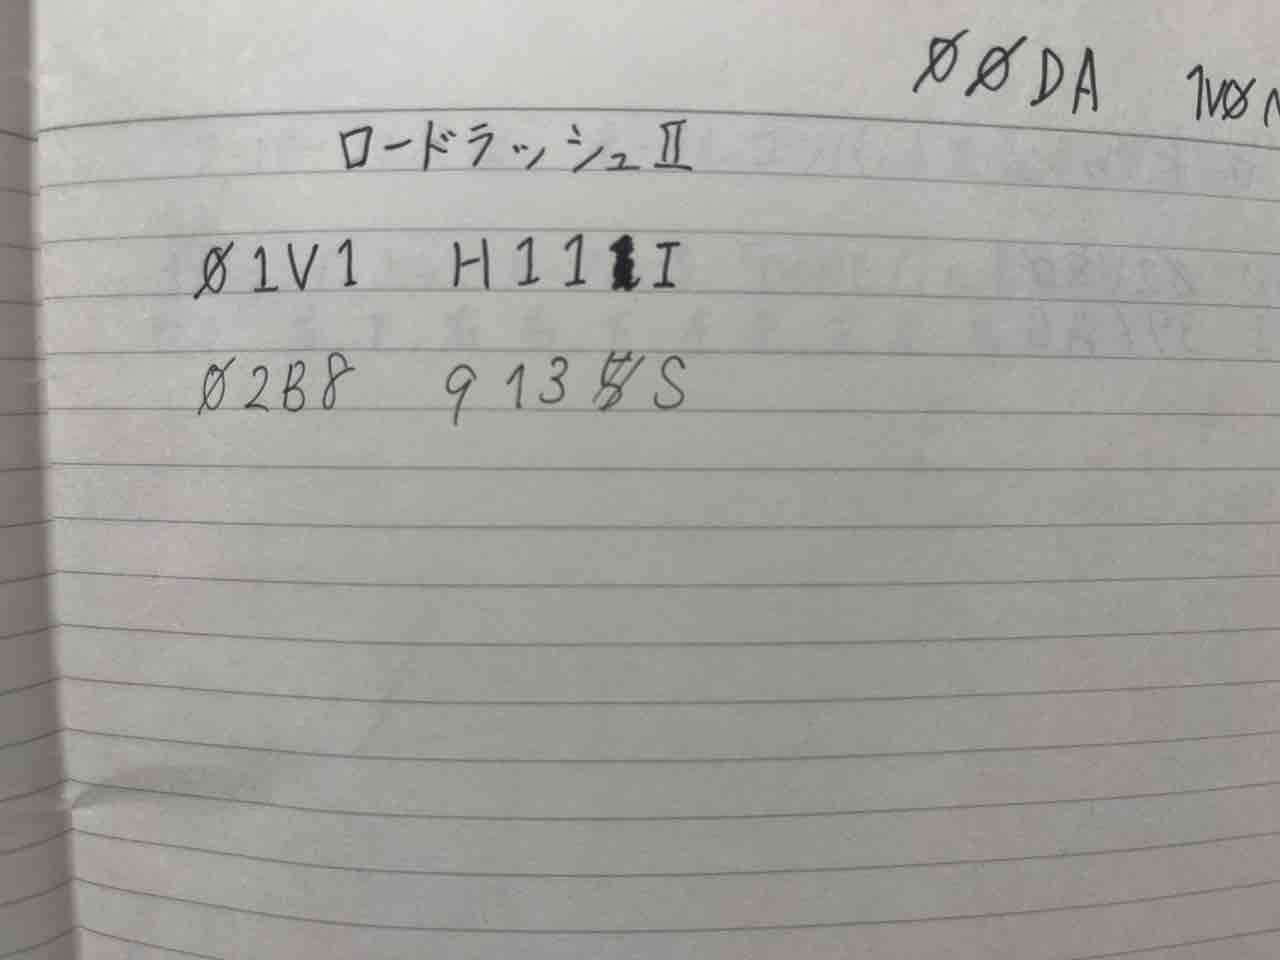 ØØDA 1VØ
ロードラッシュⅡ
Ø1V1 H11I
Ø2B8 913S